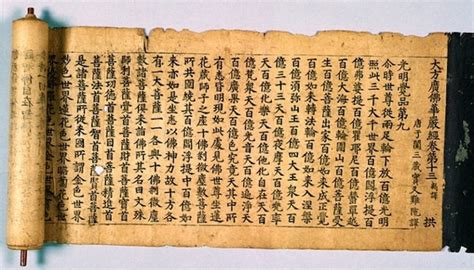 大方廣佛華嚴經卷第十三 新譯
唐于闐三藏實叉難陀譯 拱
光明覺品第九
尒時世尊從兩足輪下放百億光明
照此三千大千世界百億閻浮提百
億弗婆提百億瞿耶尼百億欝單越
百億大海百億輪圍山百億菩薩受
生百億菩薩出家百億如來成正覺
百億如來轉法輪百億如來入涅槃
百億須彌山王百億四天王衆天百
億三十三天百億夜摩天百億兜率
天百億化樂天百億他化自在天百
億梵衆天百億光音天百億遍淨天
百億廣果天百億色究竟天其中所
有悉皆明現如此處見佛世尊坐蓮
花藏師子之座十佛刹微塵數菩薩
所共圍繞其百億閻浮提中百億如
來亦如是坐悉以佛神力故十方各
有一大菩薩一一各與十佛刹微塵
數諸菩薩俱來詣佛所其名曰文殊
師利菩薩覺首菩薩財首菩薩寶首
菩薩功德首菩薩目首菩薩精進首
菩薩法首菩薩智首菩薩賢首菩薩
是諸菩薩所從來國所謂金色世界
妙色世界蓮花色世界瞻蔔花色世